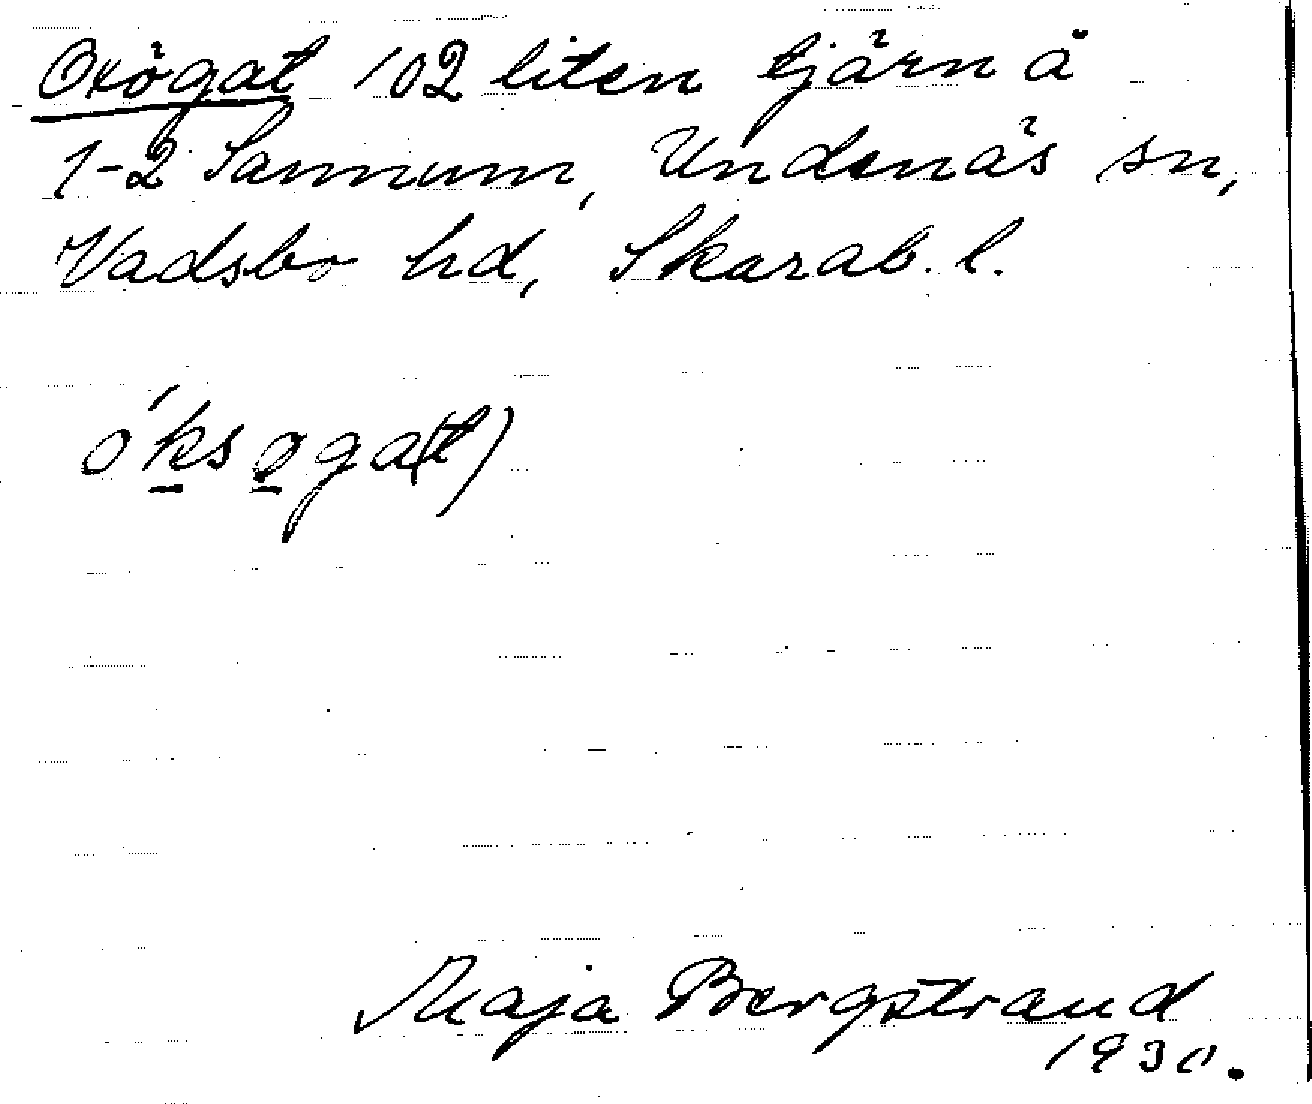 Oxögat 102 liten tjärn å
1-2 Sannum, Undenäs sn,
Vadsbo hd, Skarab. l.
óksøga(t)
Maja Bergstrand
1930.